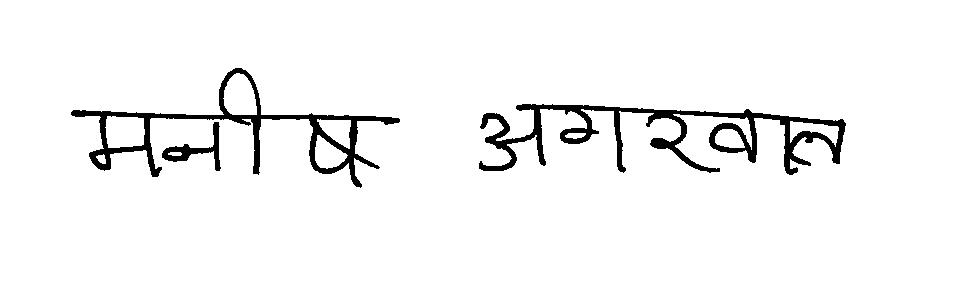 मनीष अगरवाल